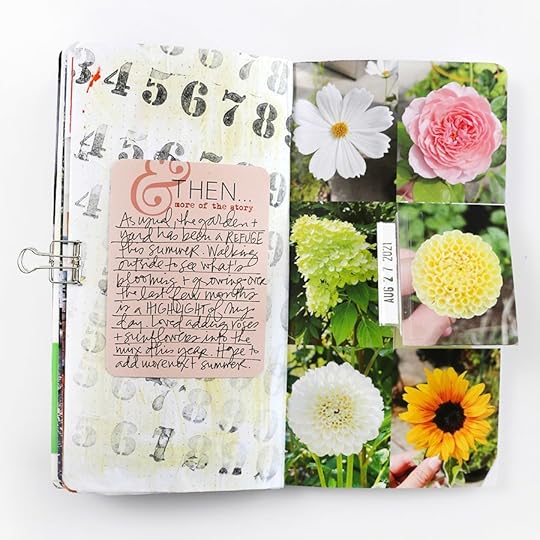 345678
45678
& THEN...
more of the story
As usual, the garden +
yard has been a REFUGE
this summer. Walking
outside to see what's
blooming + growing over
the last few months
is a HIGHLIGHT of my
day. Loved adding roses
+ sunflowers into the
mix this year. Hope to
add more next summer.
AUG 2 7 2022
567